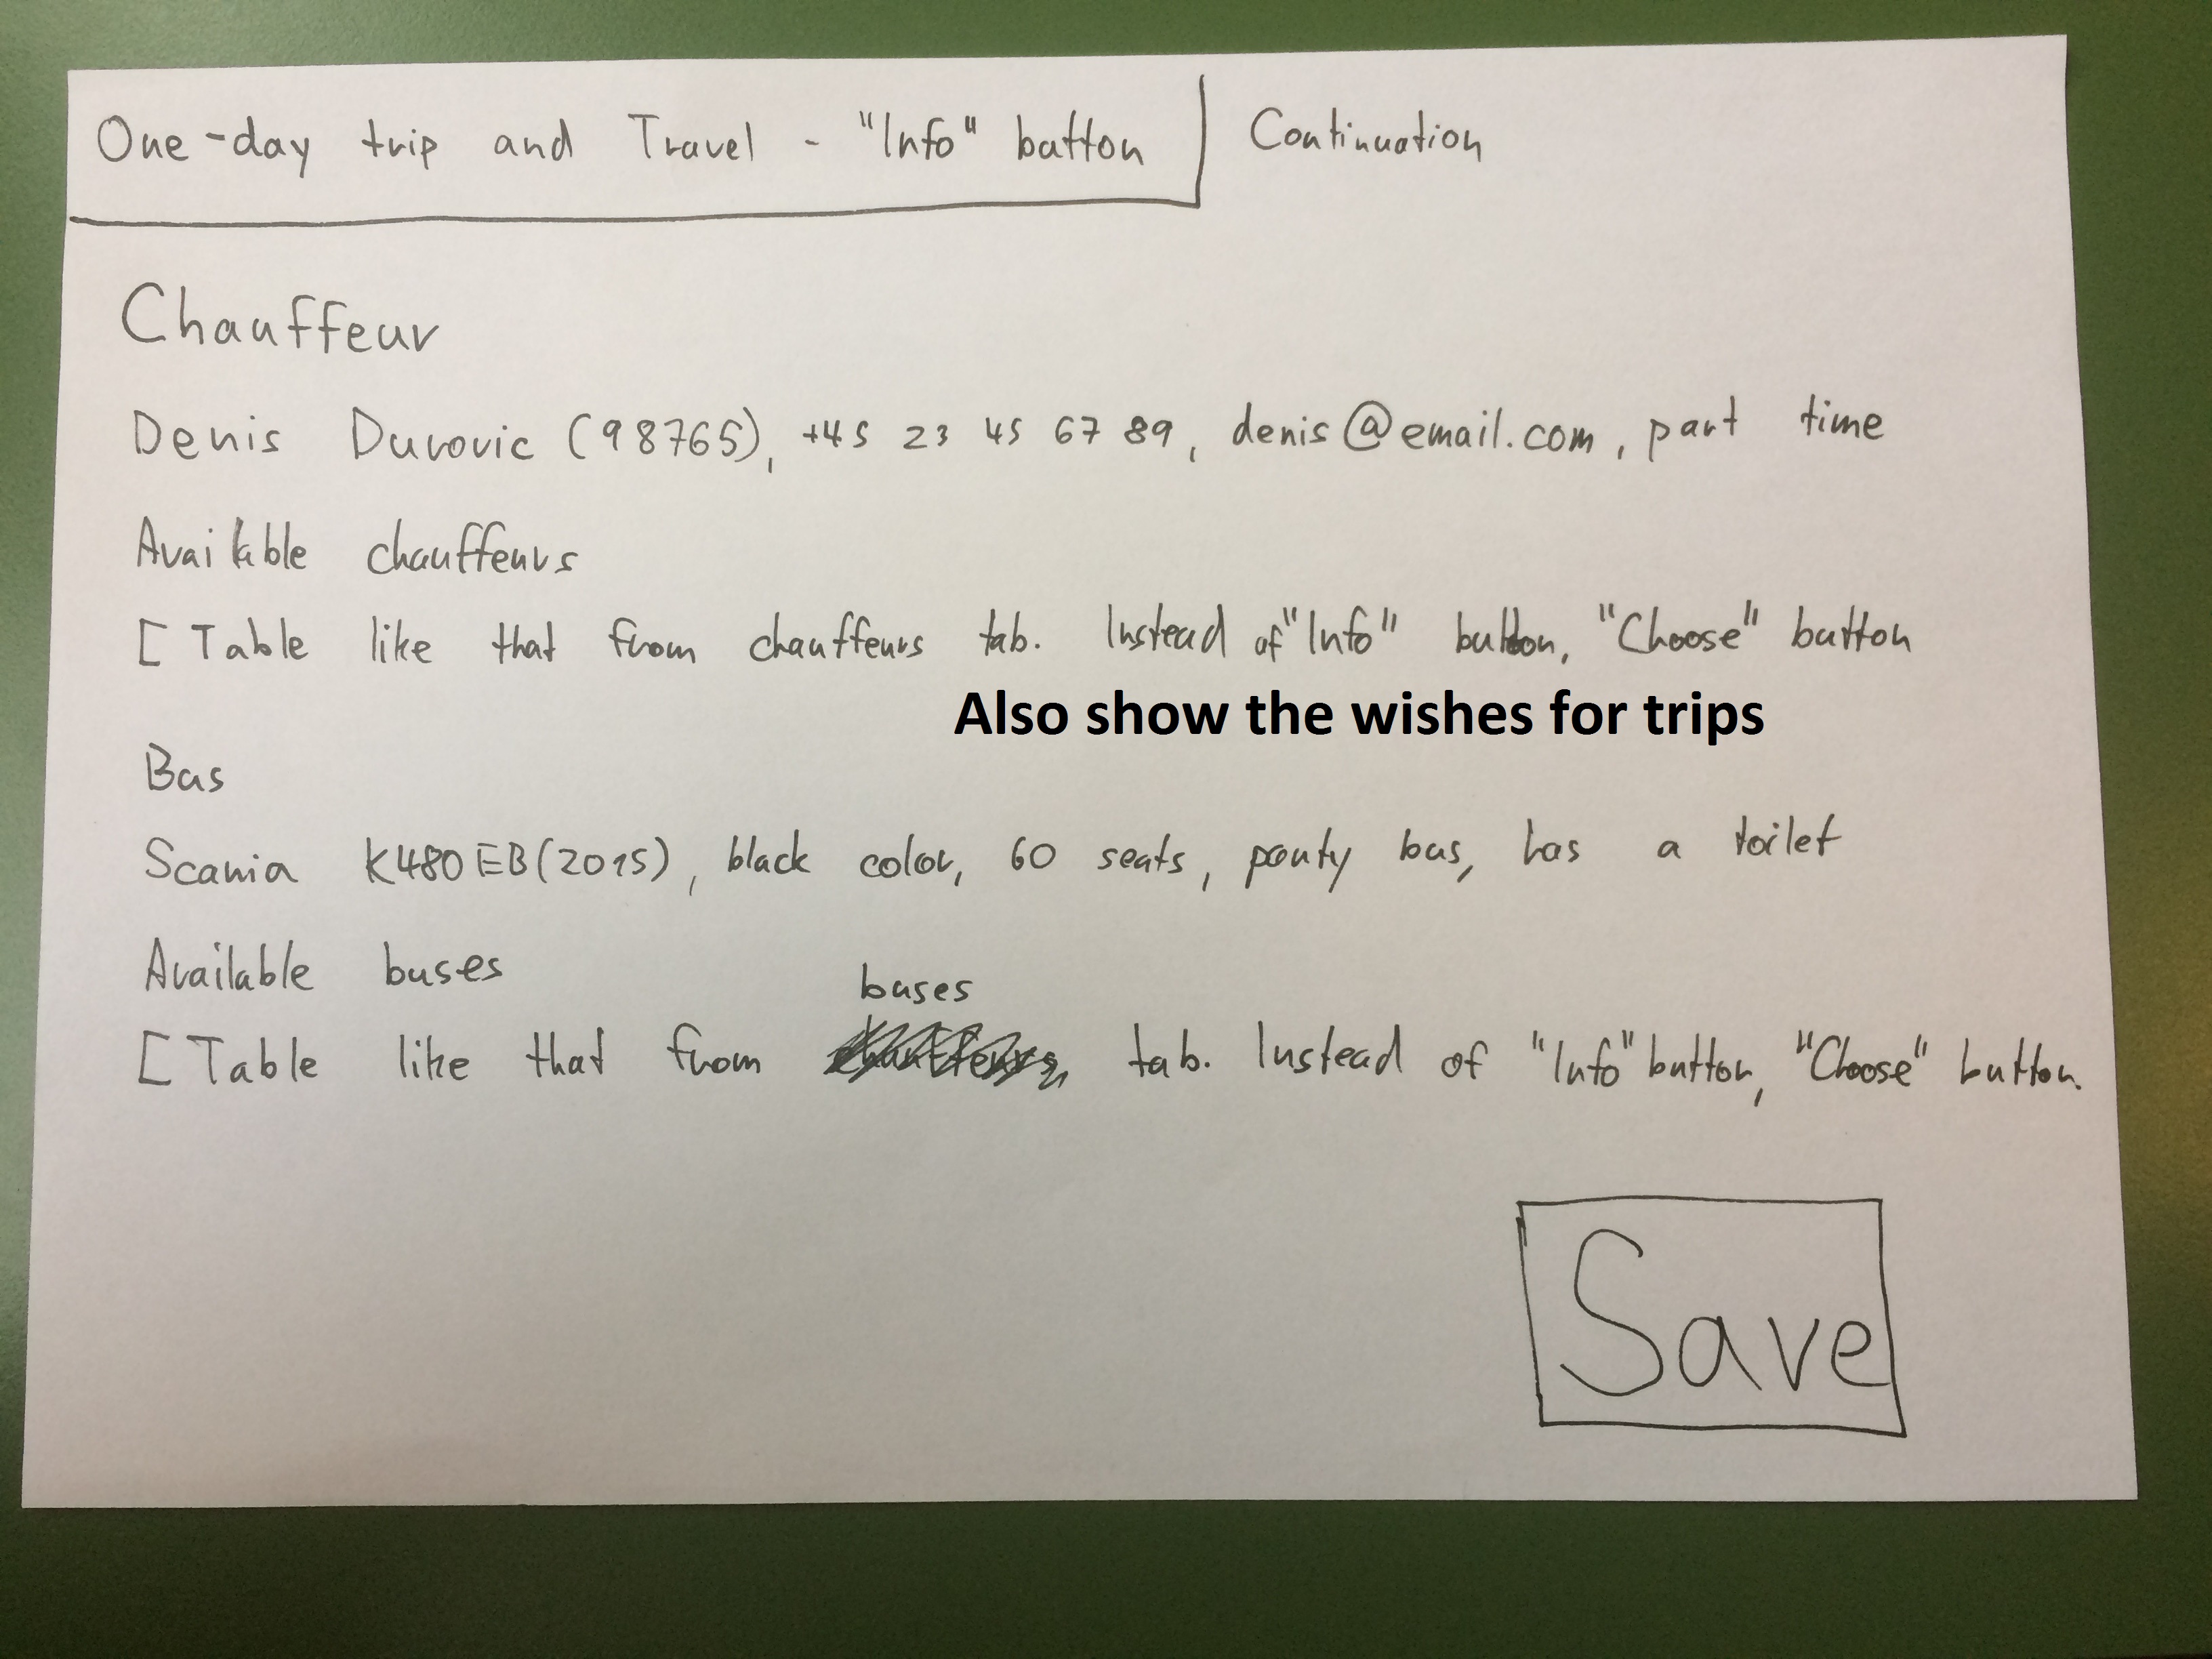 One-day trip and Travel - "Info" button
Continuation
Chauffeur
Denis Durovic (98765), +45 23 45 67 89, denis@email.com, part time
Available chauffeurs
[ Table like that from chauffeurs tab. Instead of "Info" button, "Choose" button
Also show the wishes for trips
Bus
Scania K480EB(2015), black color, 60 seats, party bus, has a toilet
Available buses
buses
[ Table like that from chauffeurs tab. Instead of "Info" button, "Choose" button.
Save